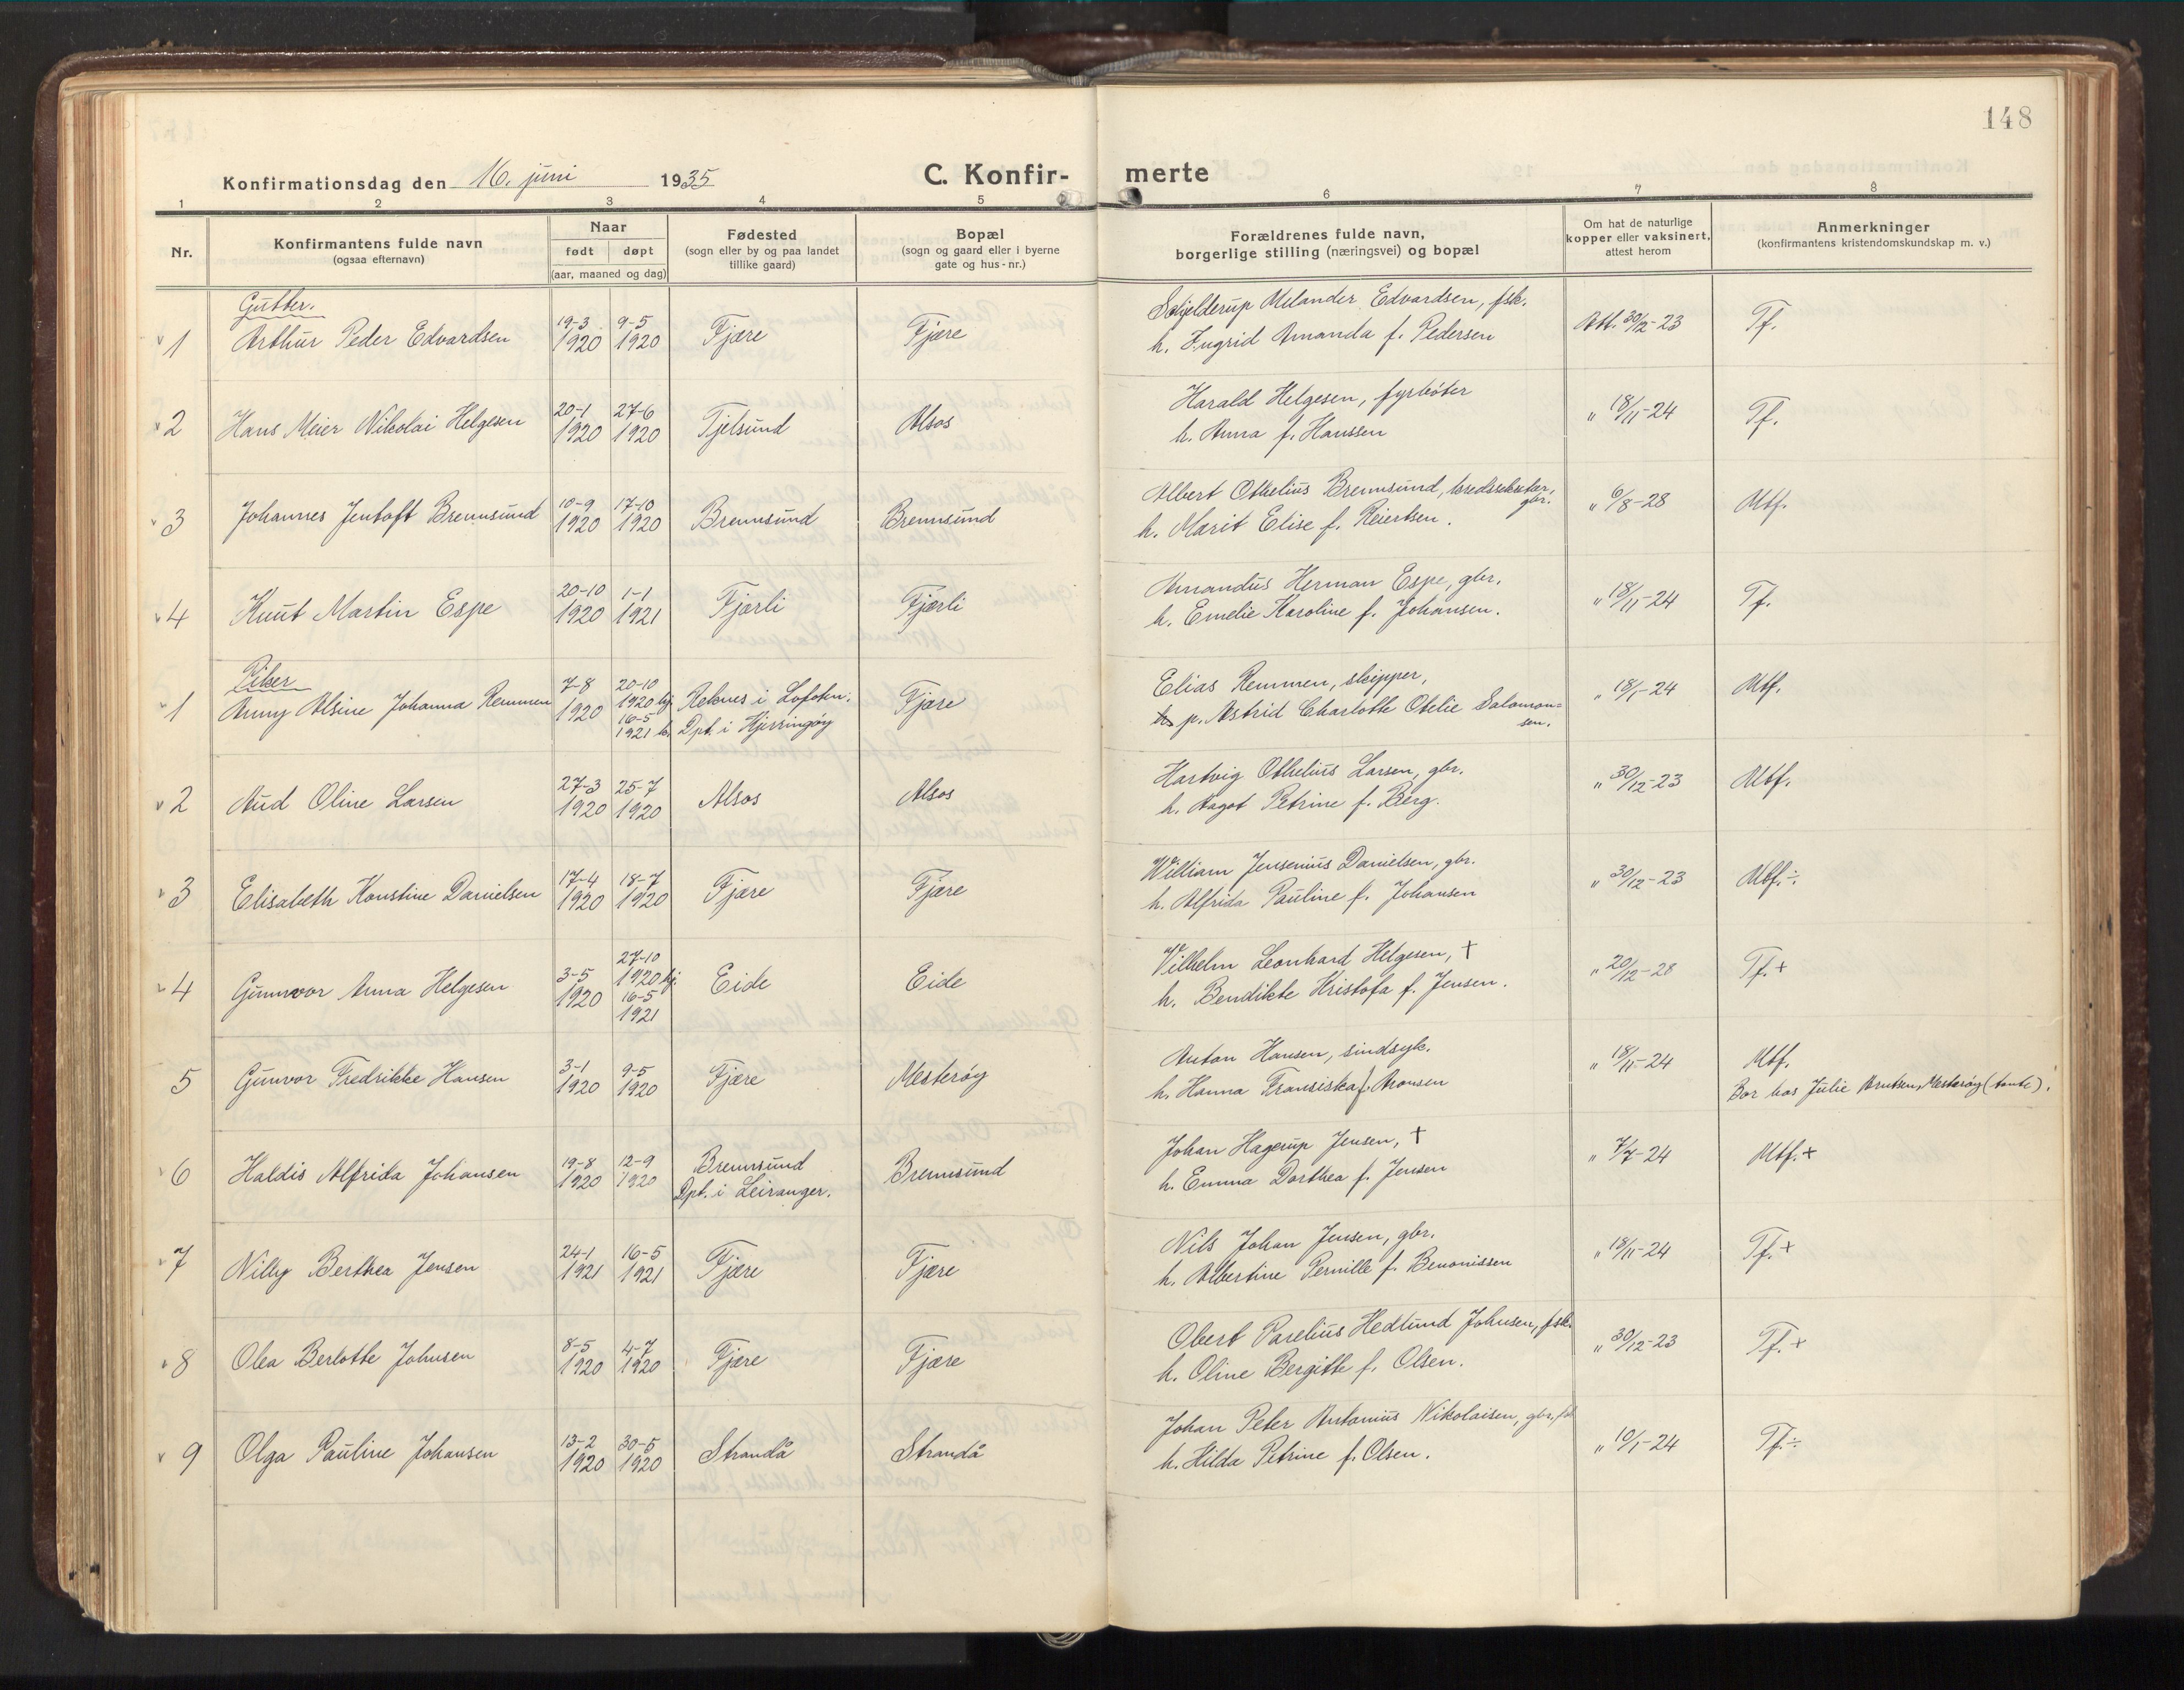 148
Konfirmationsdag den 16. juni 1935 C. Konfir- merte
1 2 3 4 5 6 7 8
Nr. Konfirmantens fulde navn (ogsaa efternavn) Naar født døpt (aar, maaned og dag) Fødested (sogn eller by og paa landet tillike gaard) Bopæl (sogn og gaard eller i byerne gate og hus-nr.) Forældrenes fulde navn, borgerlige stilling (næringsvei) og bopæl Om hat de naturlige kopper eller vaksinert, attest herom Anmerkninger (konfirmantens kristendomskundskap m. v.)
Gutter.
1 Arthur Peder Edvardsen 19-3 1920 9-5 1920 Fjære Fjære Schjelderup Melander Edvardsen, fsk. Att. 30/12-23 Tf.
h. Ingrid Amanda f. Pedersen
2 Hans Meier Nikolai Helgesen 20-1 1920 27-6 1920 Tjelsund Alsos Harald Helgesen, fyrbøter " 18/11-24 Tf.
h. Anna f. Hanssen
3 Johannes Jentoft Brennsund 10-9 1920 17-10 1920 Brennsund Brennsund Albert Othelius Brennsund, heredssekretær, gbr. " 6/8-28 Mtf.
h. Marit Elise f. Reiertsen.
4 Knut Martin Espe 20-10 1920 1-1 1921 Fjærli Fjærli Amandus Herman Espe, gbr. " 18/11-24 Tf.
h. Emelie Karoline f. Johansen.
Piker
1 Anny Alsine Johanna Remmen 7-8 1920 20-10 1920 hj. 16-5 1921 k. Reknes i Lofoten. Dpt. i Kjerringøy Fjære Elias Remmen, skipper, " 18/1-24 Mtf.
p. Astrid Charlotte Otelie Salomonsen.
2 Aud Oline Larsen 27-3 1920 25-7 1920 Alsos Alsos Hartvig Othelius Larsen, gbr. " 30/12-23 Mtf.
h. Aagot Petrine f. Berg.
3 Elisabeth Konstine Danielsen 17-4 1920 18-7 1920 Fjære Fjære William Jensenius Danielsen, gbr. " 30/12-23 Mtf.÷
h. Alfrida Pauline f. Johansen
4 Gunnvor Anna Helgesen 3-5 1920 27-10 1920 hj. 16-5 1921 Eide Eide Vilhelm Leonhard Helgesen, † " 20/12-28 Tf.+
h. Bendikte Kristofa f. Jensen.
5 Gunvor Fredrikke Hansen 3-1 1920 9-5 1920 Fjære Mesterøy Anton Hansen, sindsyk. " 18/11-24 Mtf.
h. Hanna Fransiska f. Aronsen Bor hos Julie Arntsen, Mesterøy (tante).
6 Haldis Alfrida Johansen 19-8 1920 12-9 1920 Brennsund Dpt. i Leiranger. Brennsund Johan Hagerup Jensen, † " 7/7-24 Mtf.+
h. Emma Dorthea f. Jensen
7 Nilly Berthea Jensen 24-1 1921 16-5 1921 Fjære Fjære Nils Johan Jensen, gbr. " 18/11-24 Tf.+
h. Albertine Pernille f. Benonissen
8 Olea Berlotte Johnsen 8-5 1920 4-7 1920 Fjære Fjære Obert Parelius Hedlund Johnsen, fsk. " 30/12-23 Tf.+
h. Oline Bergitte f. Olsen.
9 Olga Pauline Johansen 13-2 1920 30-5 1920 Strandå Strandå Johan Peter Antonius Nikolaisen, gbr, fsk " 10/1-24 Tf.÷
h. Hilda Petrine f. Olsen.